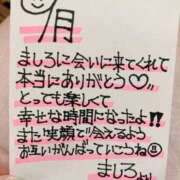 月
ましろに会いに来てくれて
本当にありがとう♡
とっても楽しくて
幸せな時間になったよ!!
また笑顔で会えるよう
お互いがんばっていこうね
ましろより